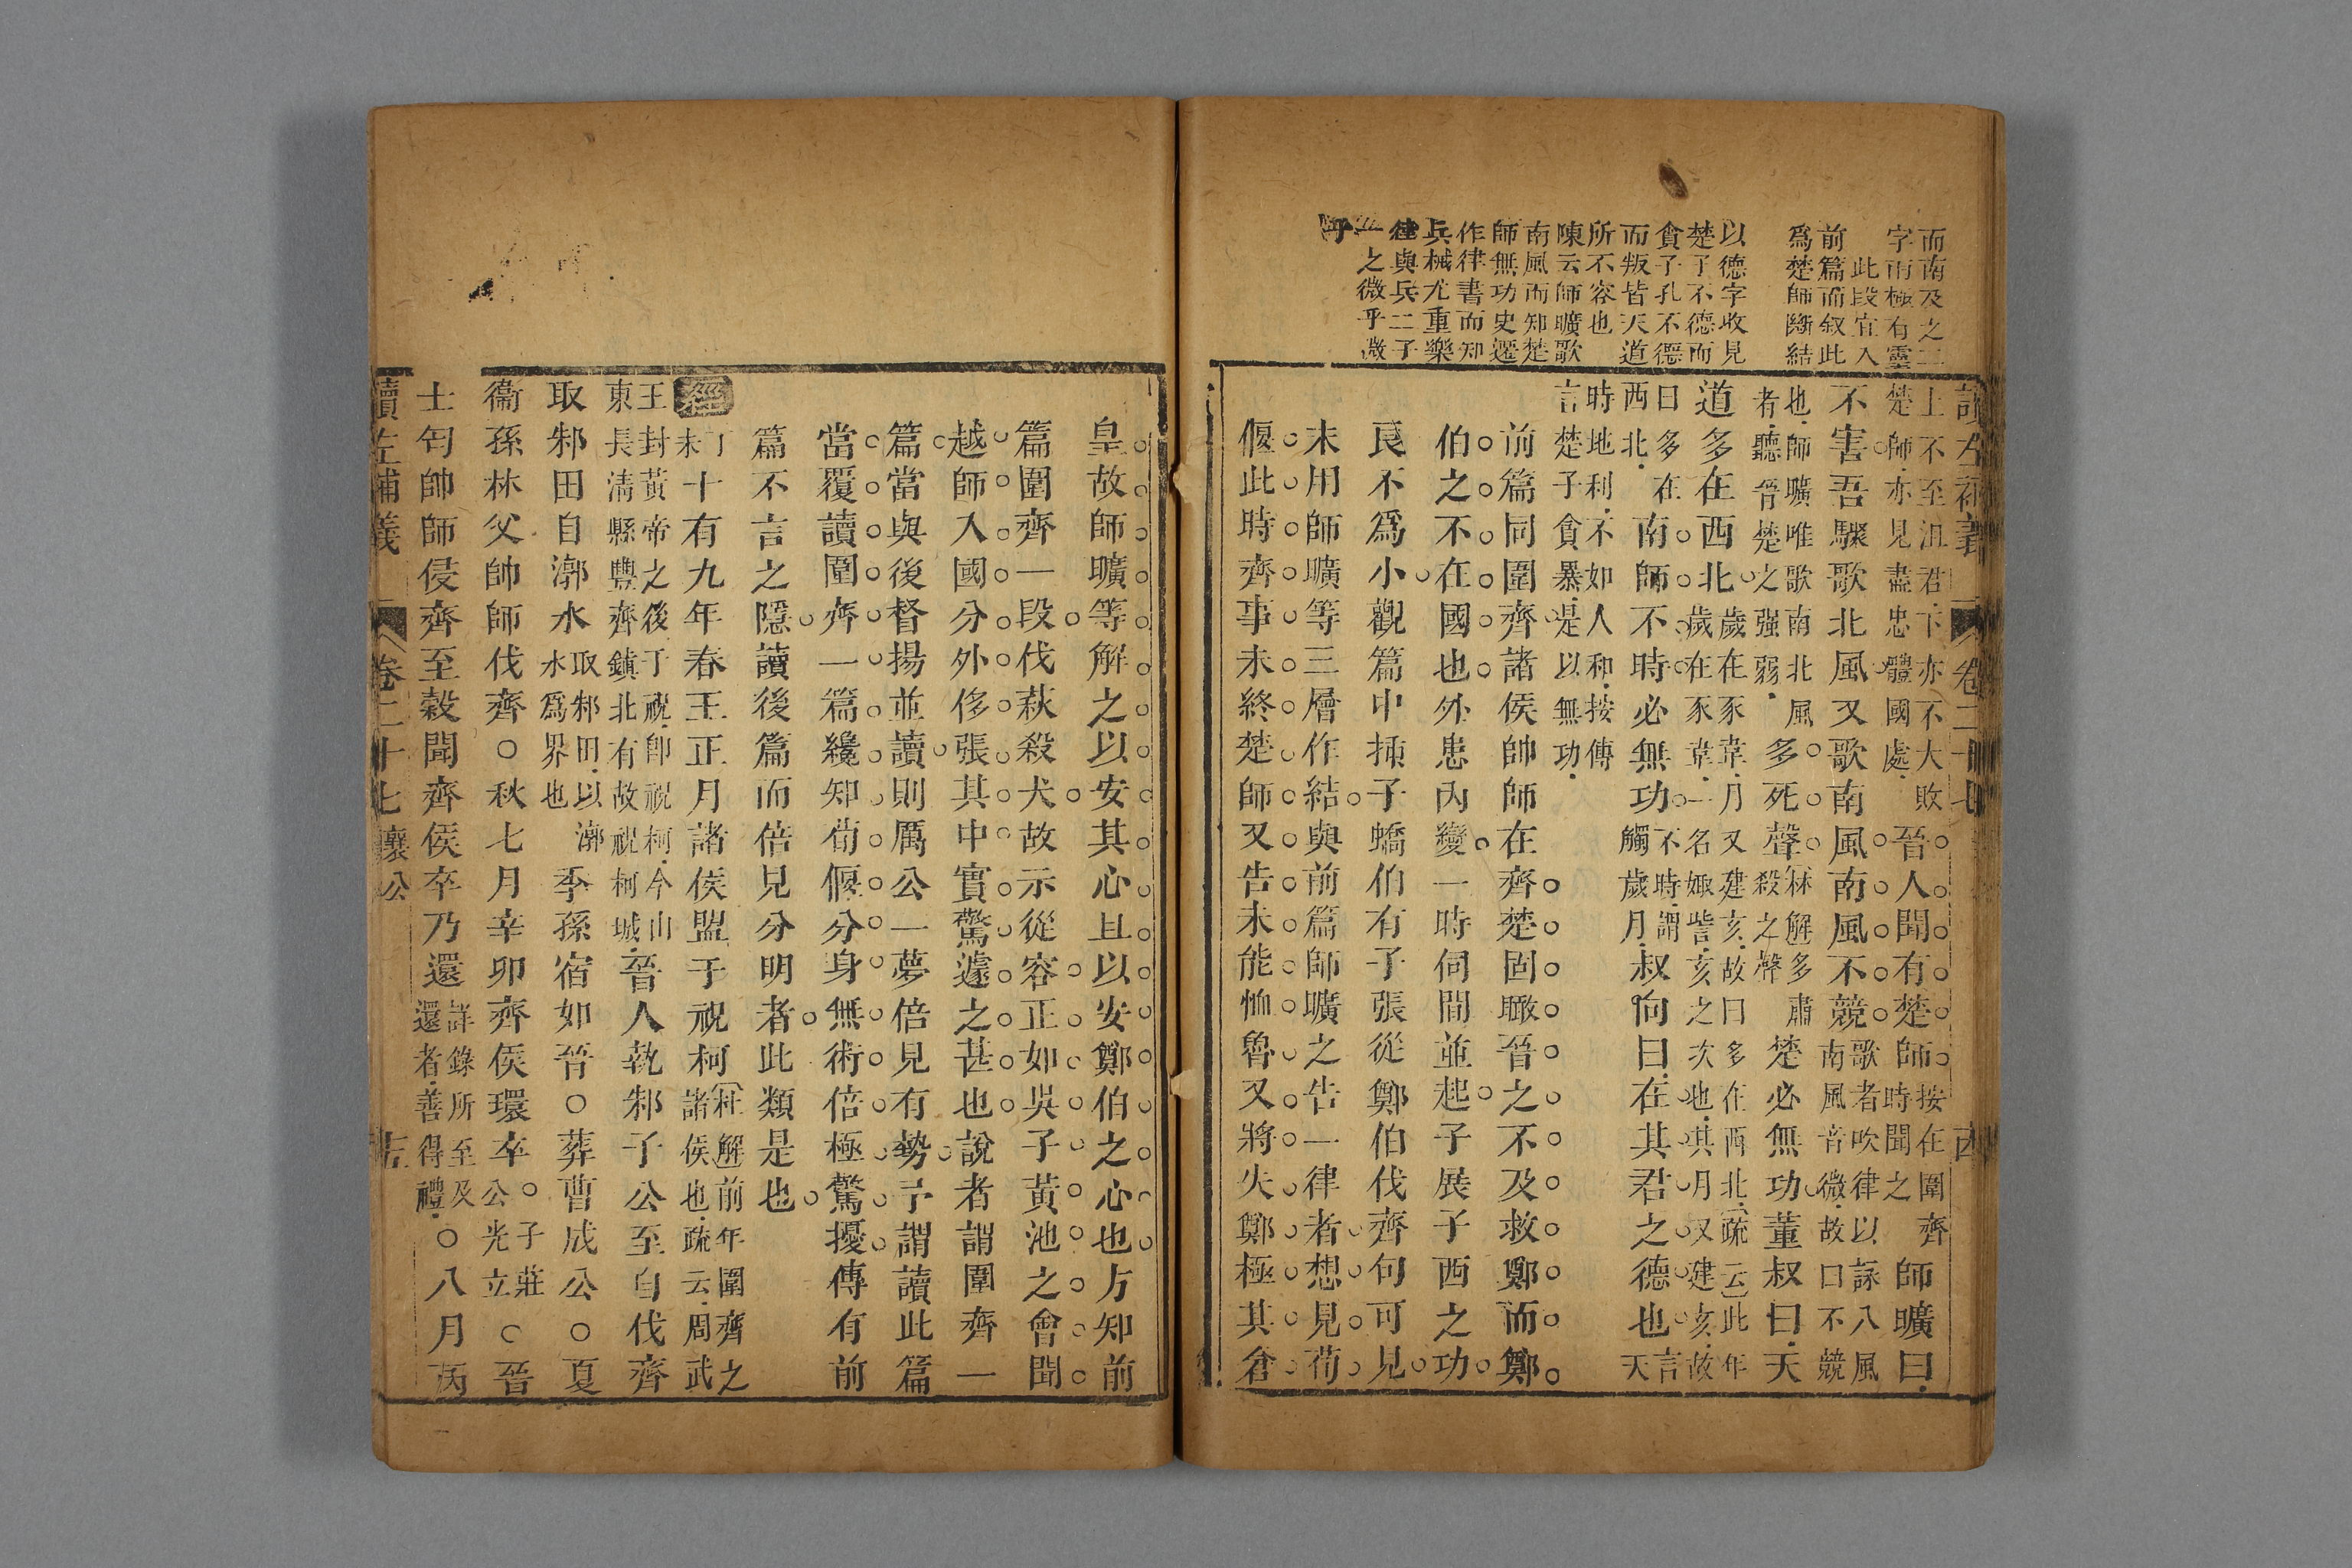 而南及之二
字南極有靈
此段宜入
前篇而叙此
爲楚師斷結
以德字收見
楚子不德而
貪子孔不德
而叛皆天道
所不容也
陳云師曠歌
南風而知楚
師無功史遷
作律書而知
兵械尤重樂
律與兵二子
一之微乎微
乎
讀左補義 卷二十七
上不至沮君下亦不大敗
楚師亦見盡忠體國處
晉人聞有楚師
按在圍齊
時聞之
師曠曰
不害吾驟歌北風又歌南風南風不競
歌者吹律以詠八風
南風音微故曰不競
也師曠唯歌南北風
者聽晉楚之强弱
多死聲
林解多肅
殺之聲
楚必無功董叔曰天
道多在西北
歲在豕韋月又建亥故曰多在西北疏云此年
歲在豕韋一名娵訾亥之次也其月又建亥故
曰多在
西北
南師不時必無功
不時謂
觸歲月
叔向曰在其君之德也
言
天
時地利不如人和按傳
言楚子貪暴是以無功
前篇同圍齊諸侯帥師在齊楚固瞰晉之不及救鄭而鄭
伯之不在國也外患內變一時伺間並起子展子西之功
良不爲小觀篇中揷子蟜伯有子張從鄭伯伐齊句可見
末用師曠等三層作結與前篇師曠之告一律者想見荀
偃此時齊事未終楚師又告未能恤魯又將失鄭極其倉
皇故師曠等解之以安其心且以安鄭伯之心也方知前
篇圍齊一段伐萩殺犬故示從容正如吳子黃池之會聞
越師入國分外侈張其中實驚遽之甚也說者謂圍齊一
篇當與後督揚並讀則厲公一夢倍見有勢予謂讀此篇
當覆讀圍齊一篇纔知荀偃分身無術倍極驚擾傳有前
篇不言之隱讀後篇而倍見分明者此類是也
經
丁
未
十有九年春王正月諸侯盟于祝柯
杜解前年圍齊之
諸侯也疏云周武
王封黃帝之後于祝卽祝柯今山
東長淸縣豐齊鎮北有故祝柯城
晉人執邾子公至自伐齊
取邾田自漷水
取邾田以漷
水爲界也
季孫宿如晉○葬曹成公○夏
衞孫林父帥師伐齊○秋七月辛卯齊侯環卒
子莊
公光立
○晉
士匄帥師侵齊至穀聞齊侯卒乃還
詳錄所至及
還者善得禮
○八月丙
讀左補義 卷二十七 襄公